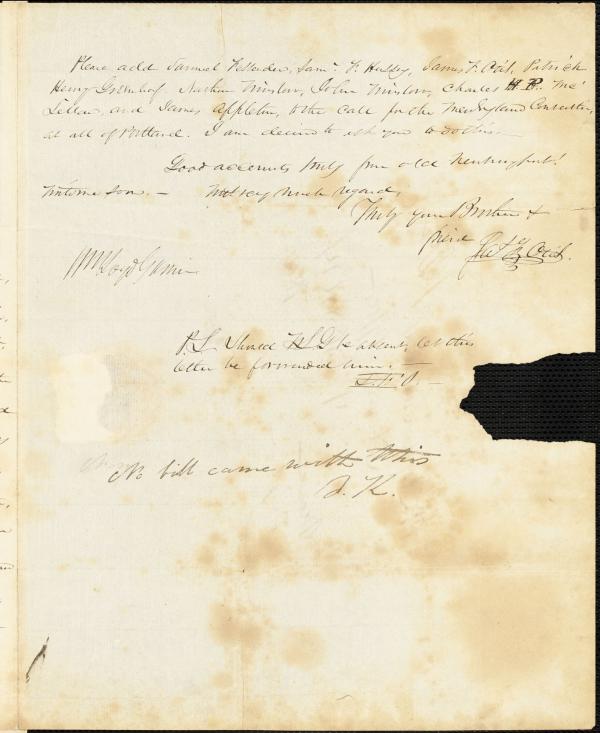 Please add Samuel Fessenden, Sam'l F. Hussey, James F. Otis, Patrick
Henry Greenleaf, Nathan Winslow, John Winslow, Charles H P. Mc'
Lellan, and James Appleton, to the Call for the New England Convention,
at all of Portland. I am desired to ask you to do this.—
Good accounts truly from old Newburyport!
Write me soon. — With very much regard,
Truly your Brother &
friend Jas F. Otis.
Wm Lloyd Garrison
P.S. Should W L G be absent, let this
letter be forwarded him.
J. F. O. —
No bill came with this
J. K.